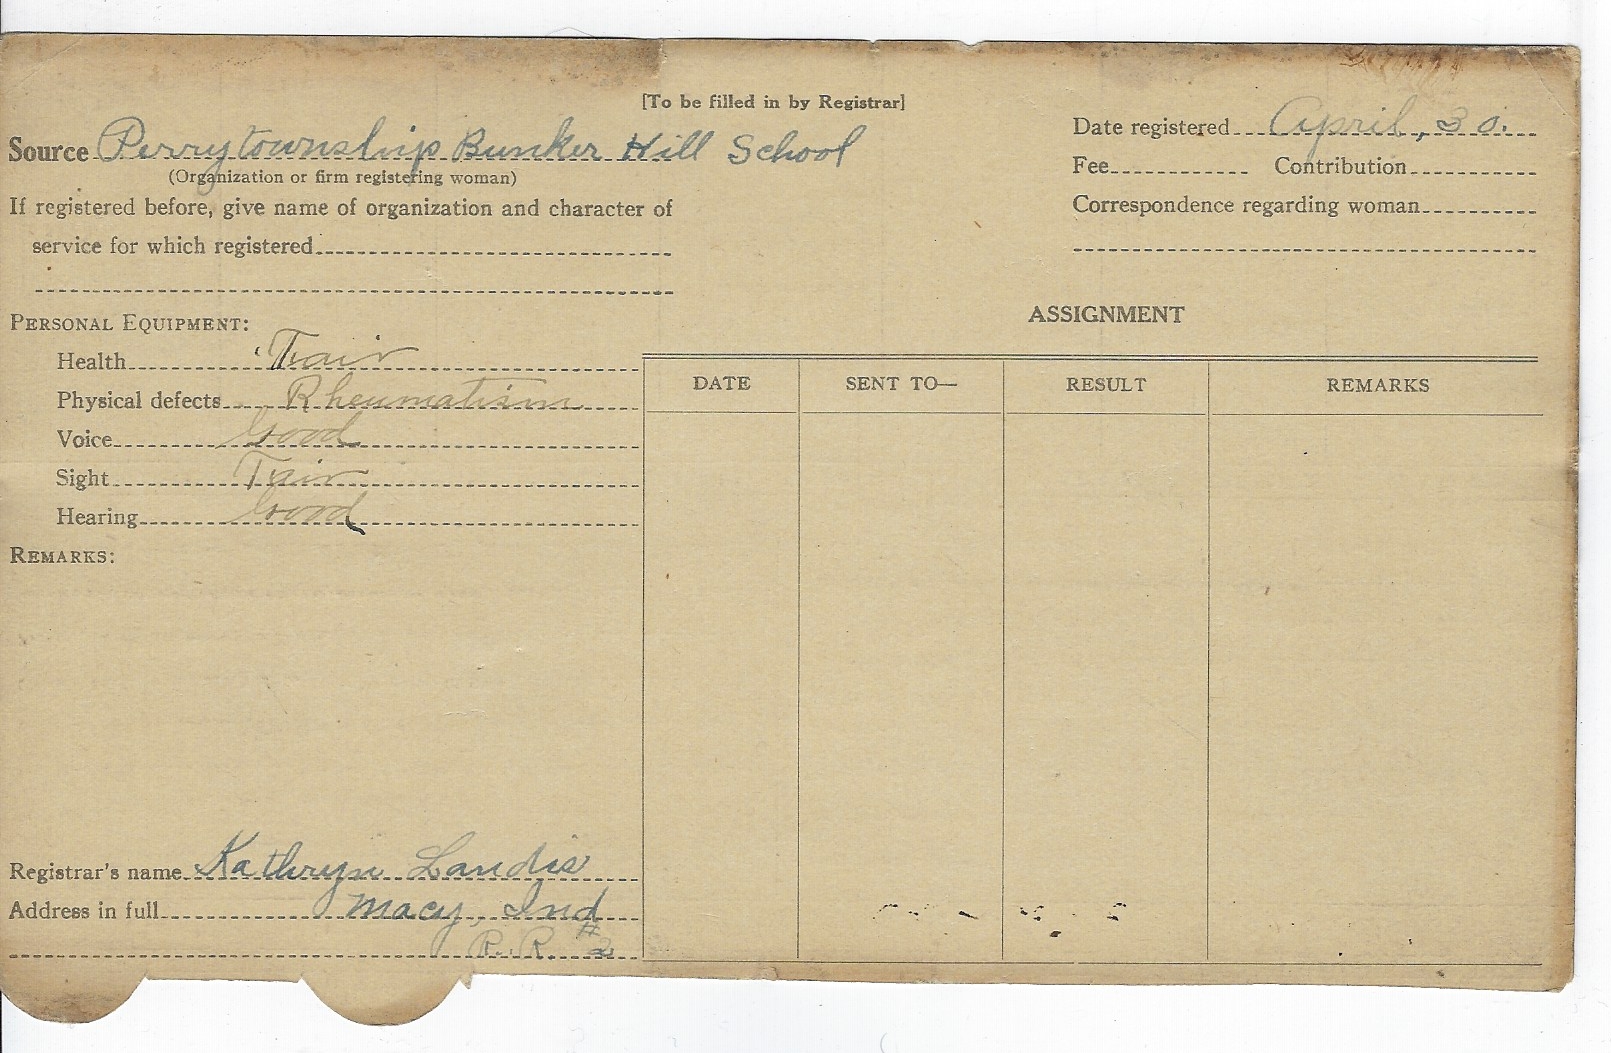 [To be filled in by Registrar]
Source Perry township Bunker Hill School
(Organization or firm registering woman)
If registered before, give name of organization and character of
service for which registered
Date registered April, 30.
Fee Contribution
Correspondence regarding woman
PERSONAL EQUIPMENT:
Health Fair
Physical defects Rheumatism
Voice Good
Sight Fair
Hearing Good
REMARKS:
Registrar's name Kathryn Landis
Address in full Macy, Ind
R. R. #2
ASSIGNMENT
DATE SENT TO— RESULT REMARKS